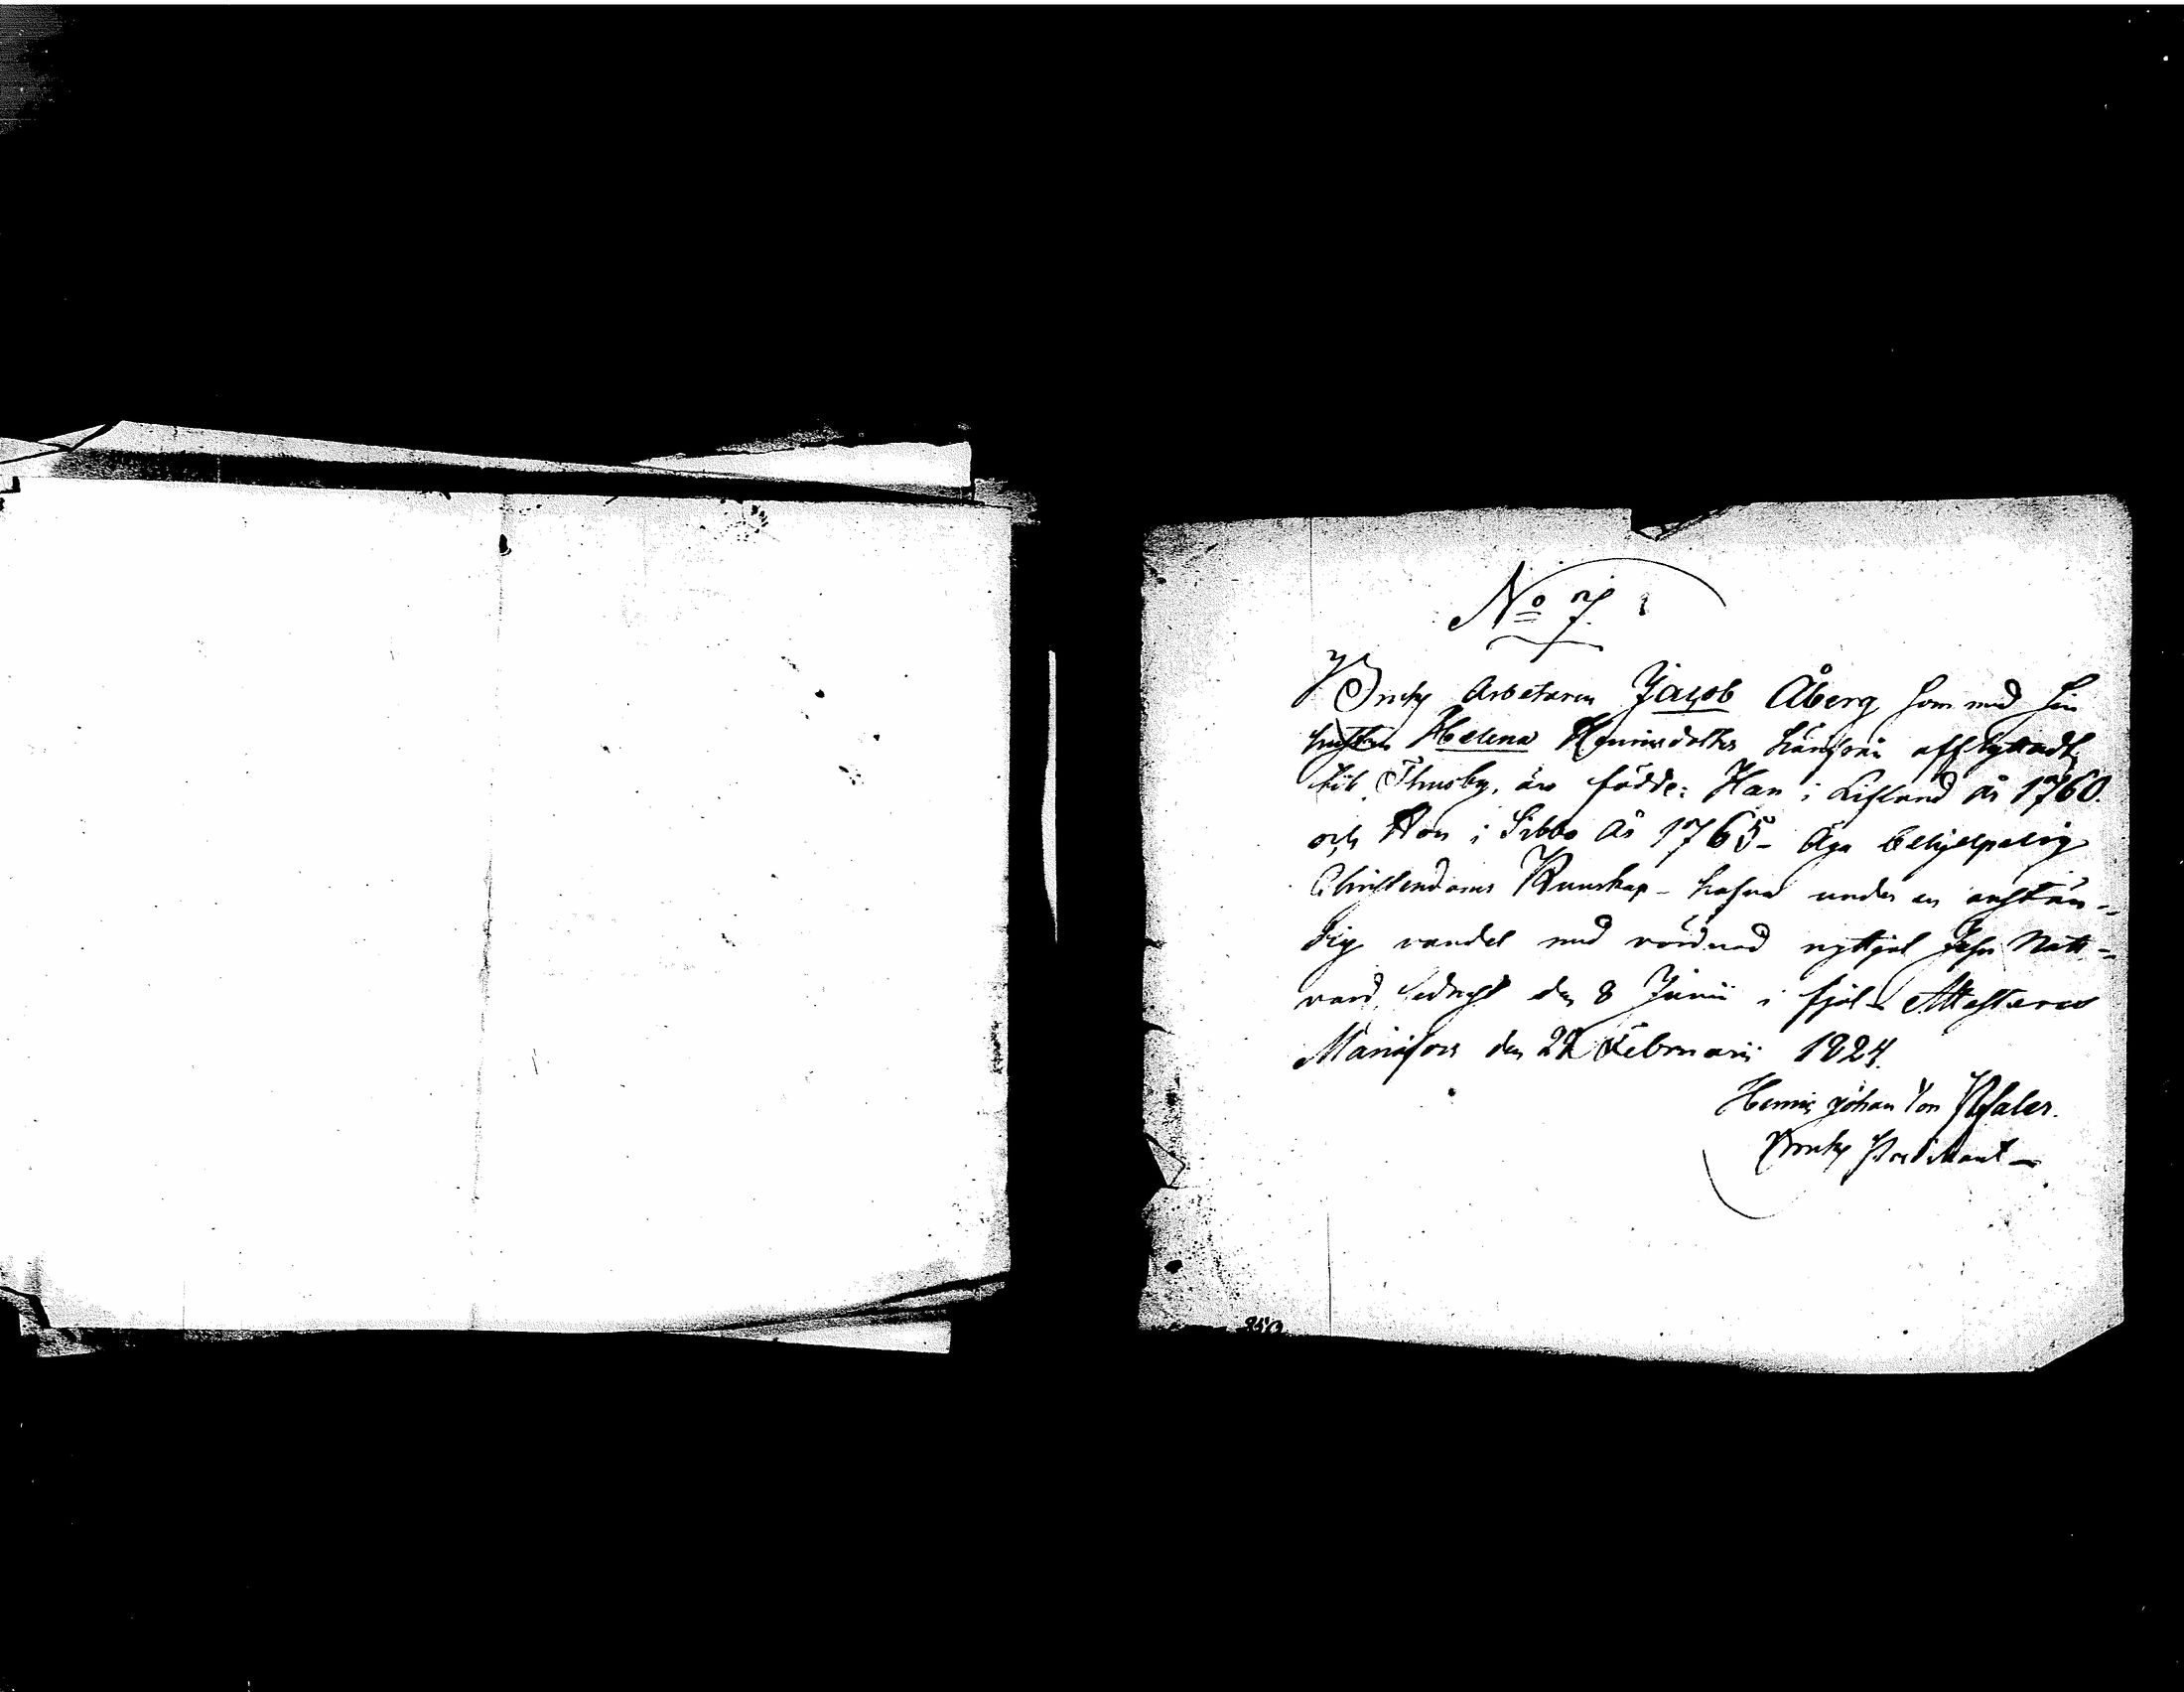 No 7.
Bruks Arbetaren Jacob Åberg som med sin
hustru Helena Henricsdotter härifrån afflyttadt
till Thusby, äro födde: Han i Lifland år 1760.
och Hon i Sibbo år 1765 - Äga behjelpelig
Christendoms Kunskap - hafva under en anstän-
dig vandel med vördnad nyttjat HErrns Natt-
vard, sednast den 8 Junii i fjol - Attesteras
Mariefors den 22 Februarii 1824.
Henric Johan Von Pfaler.
Bruks Predikant -